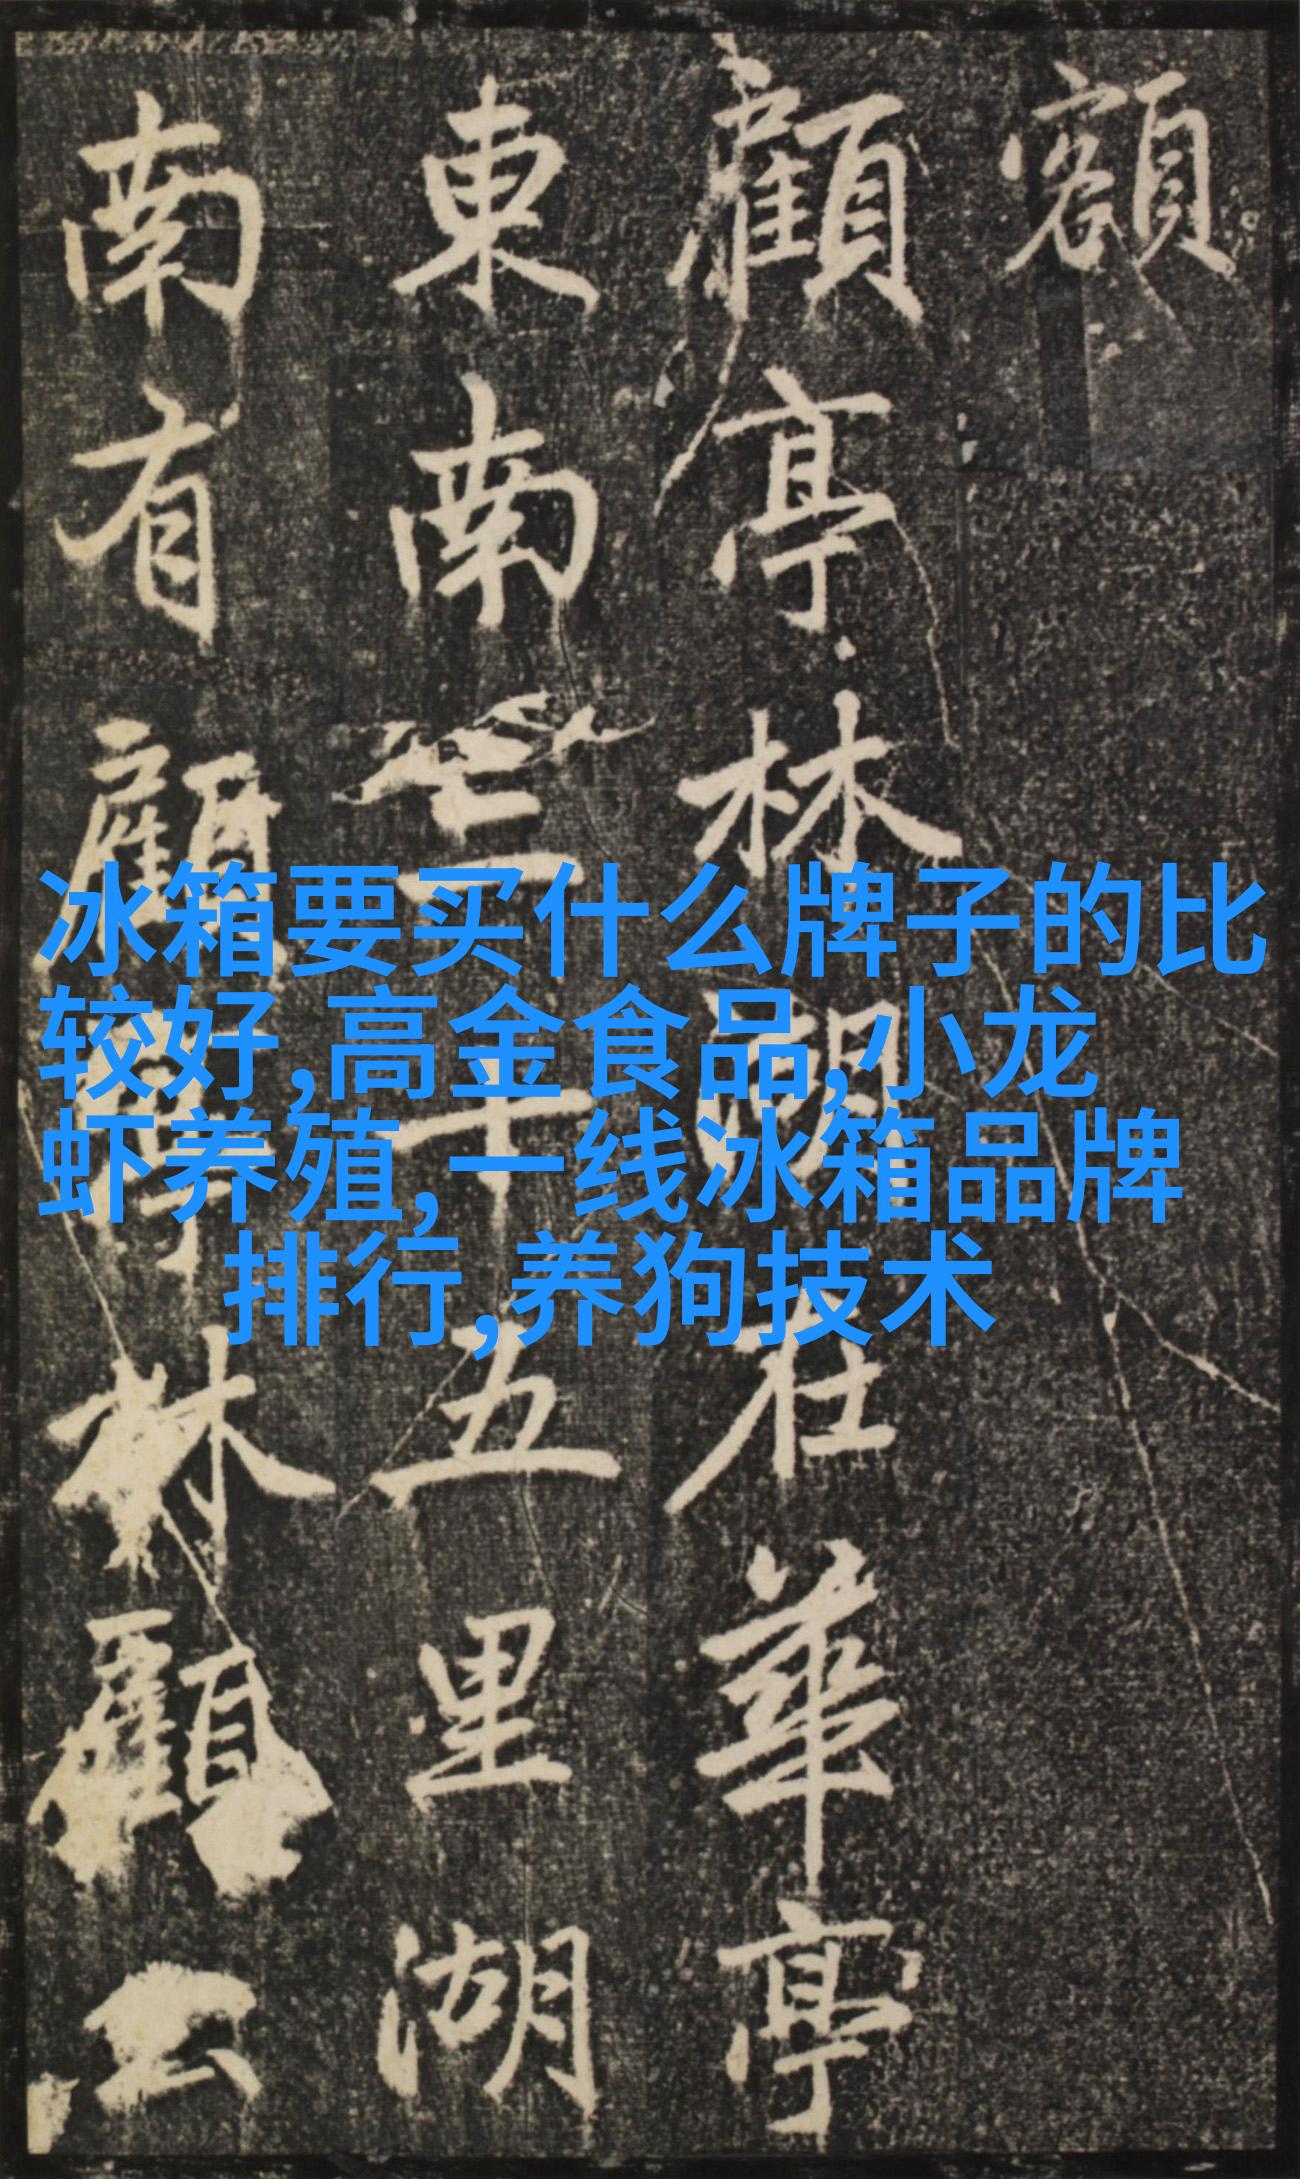 額
顧亭林湖在華亭
東南三十五里湖
南有顧亭林顧公
冰箱要买什么牌子的比
较好,高金食品,小龙
虾养殖,一线冰箱品牌
排行,养狗技术